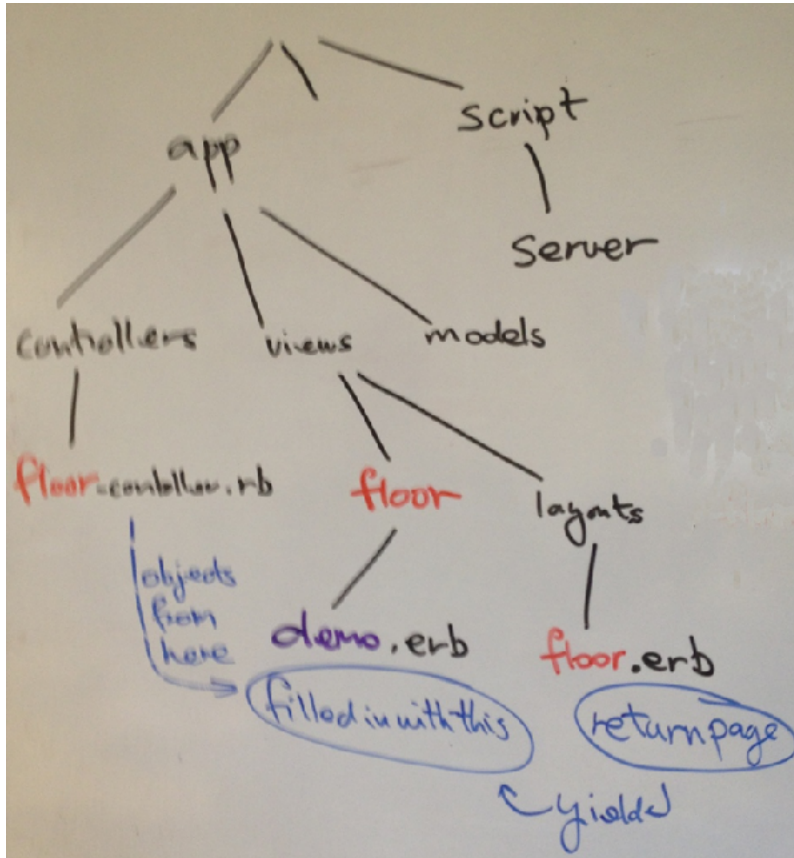 script
app
server
controllers views models
floor-controller.rb floor layouts
objects
from
here
demo.erb floor.erb
filled in with this return page
yield